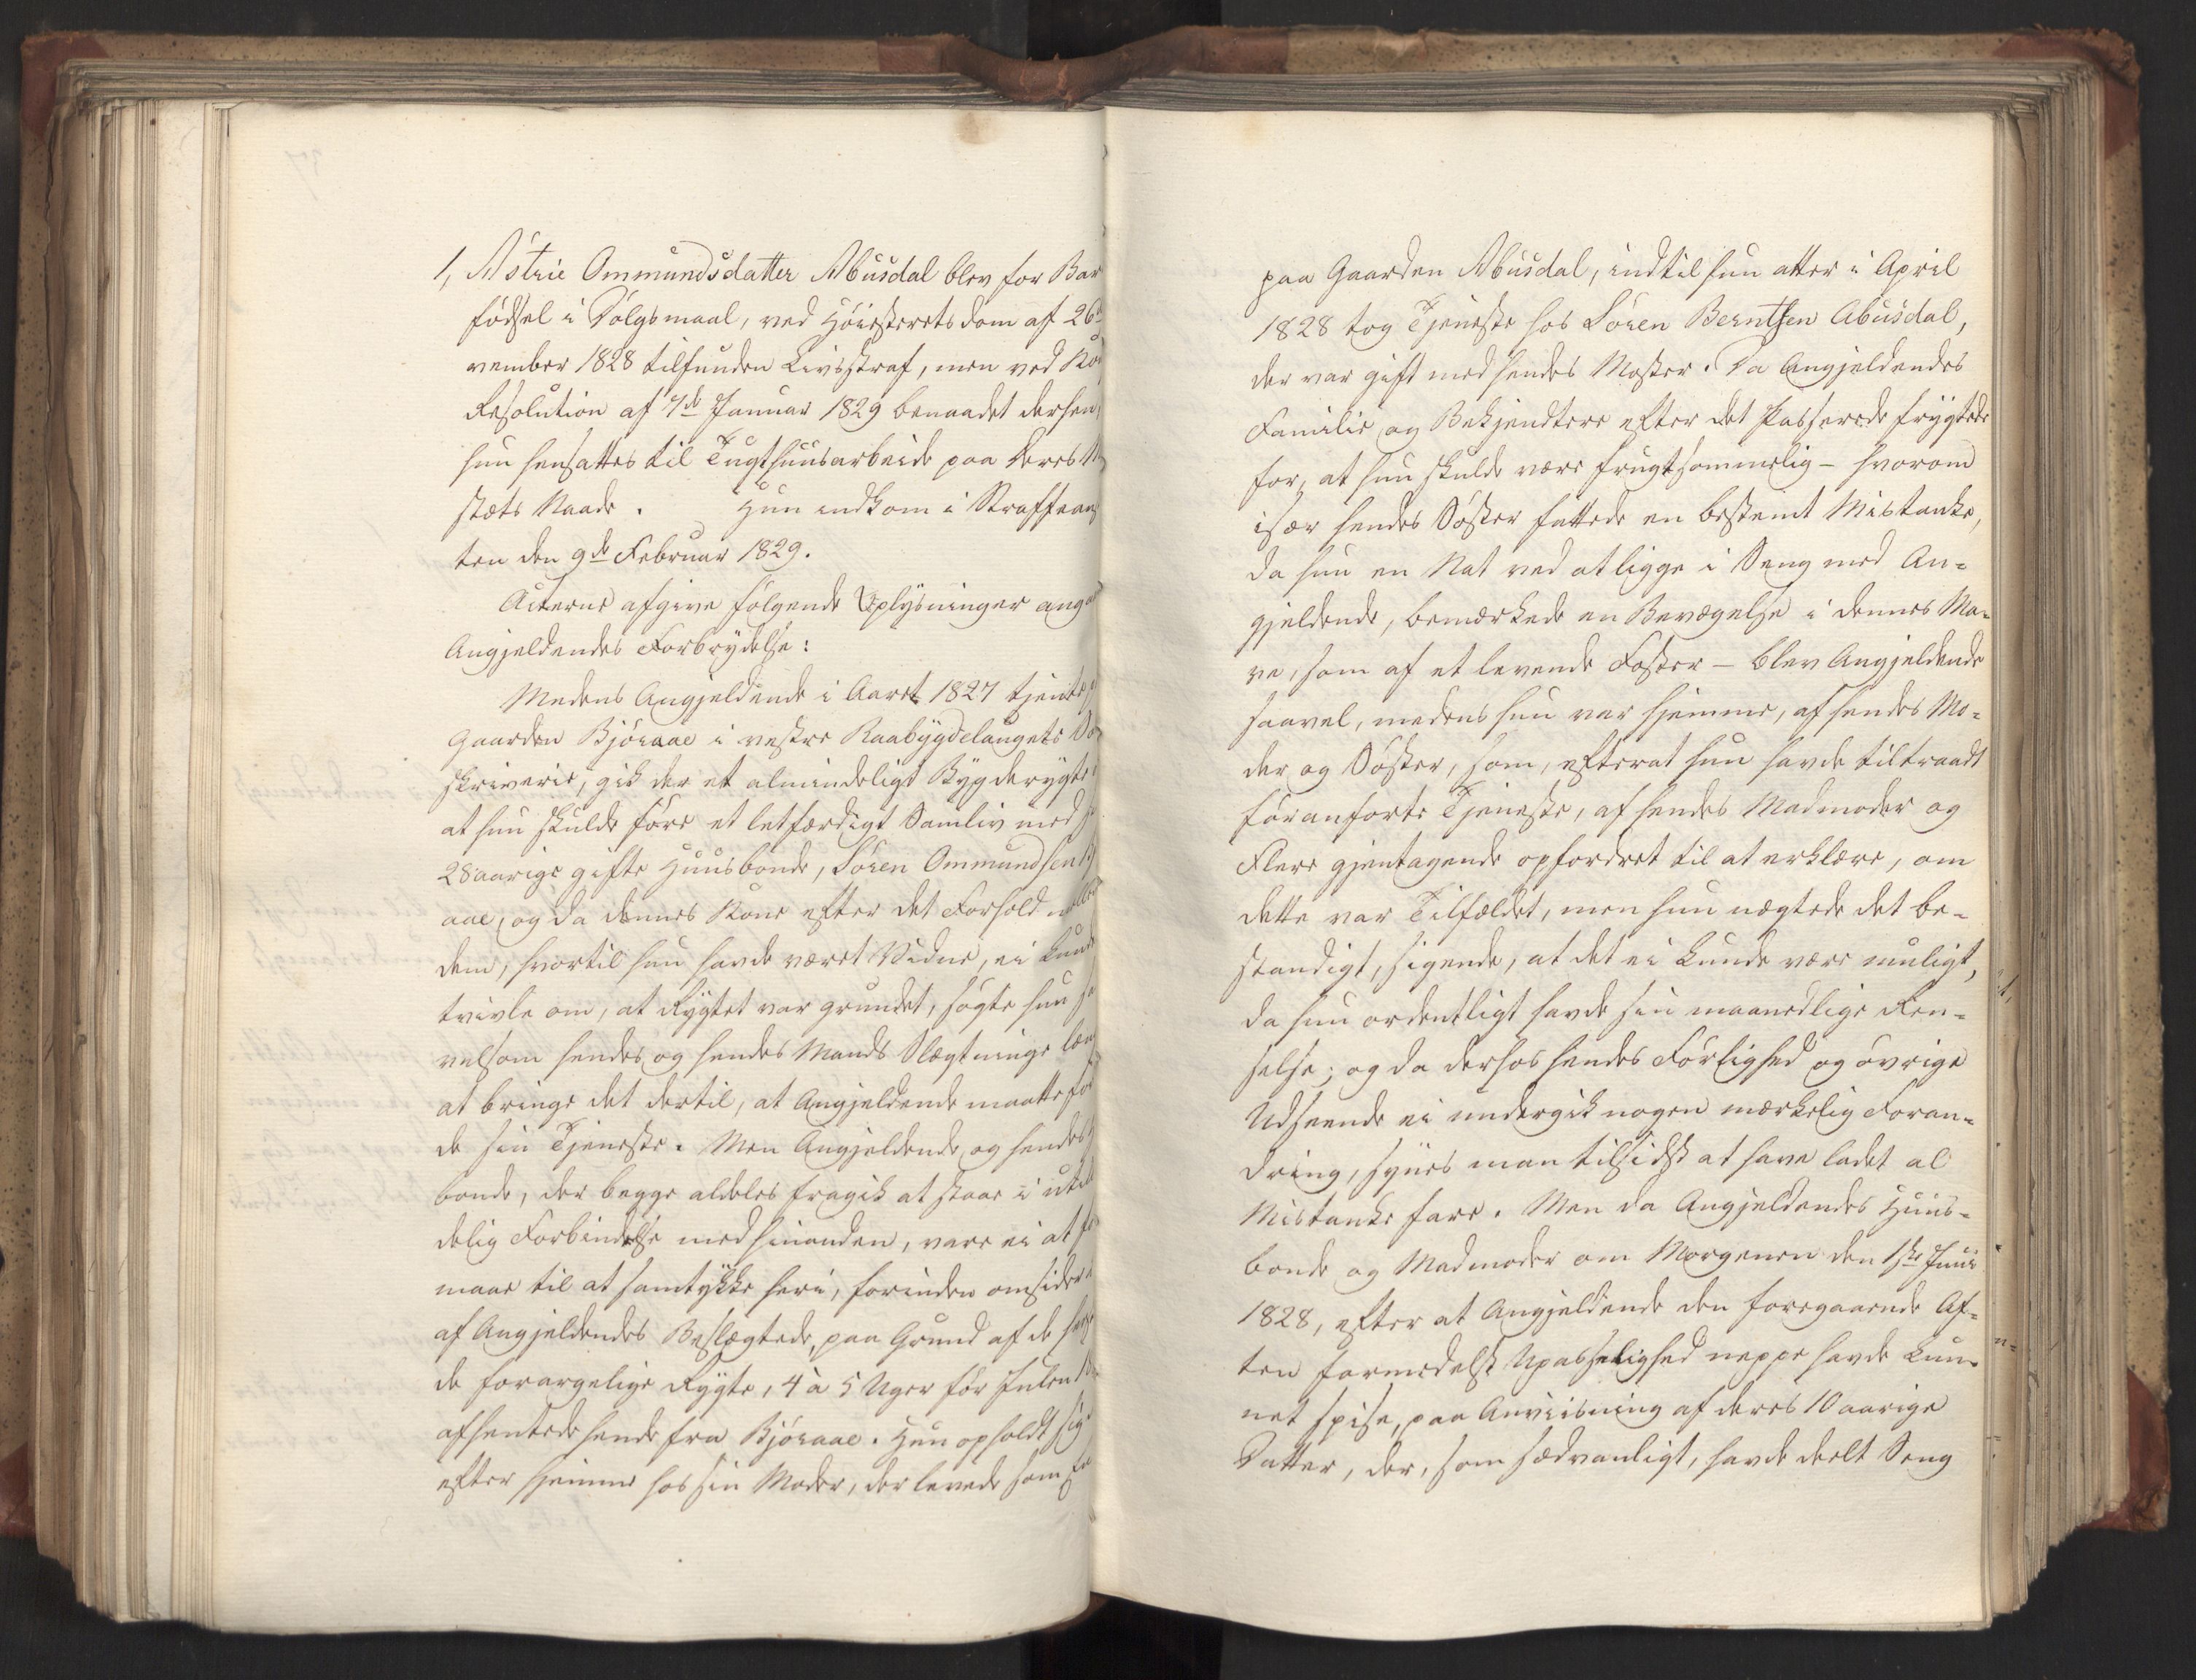 1, Astrie Ommundsdatter Abusdal blev for Bar
fødsel i Dølgsmaal, ved Høiesterets dom af 26d
vember 1828 tilfunden Livsstraf, men ved
Resolution af 7de Januar 1829 benaadet derhen,
hun hensattes til Tugthuusarbeide paa Deres
stæts Naade. Hun indkom i Straffeans
ten den 9de Februar 1829.
Acterne afgive følgende Oplysninger anga
Angjeldendes Forbrydelse:
Medens Angjeldende i Aaret 1827 tjente
Gaarden Bjøraae i vestre Raabygdelaugets
skriverie, gik der et almindeligt Bygderygte
at hun skulde føre et letfærdigt Samliv med
28aarige gifte Huusbonde, Søren Ommundsen
aae, og da dennes Kone efter det Forhold mellem
dem, hvortil hun havde været Vidne, ei kunde
tvivle om, at Rygtet var grundet, søgte hun
velsom hendes og hendes Mands Slægtninge
at bringe det dertil, at Angjeldende maatte
de sin Tjeneste. Men Angjeldende og hendes
bonde, der begge aldeles fragik at staae i util
delig Forbindelse med hinanden, vare ei at
maae til at samtykke heri, forinden omsider
af Angjeldendes Beslægtede, paa Grund af de
de forargelige Rygte, 4 à 5 Uger før Julen
afhentede hende fra Bjøraae. Hun opholdt sig
efter hjemme hos sin Moder, der levede som
paa Gaarden Abusdal, indtil hun atter i April
1828 tog Tjeneste hos Søren Berntsen Abusdal,
der var gift med hendes Moster. Da Angjeldendes
Familie og Bekjendtere efter det Passerede frygtede
for, at hun skulde være frugtsommelig – hvorom
især hendes Søster fattede en bestemt Mistanke,
da hun en Nat ved at ligge i Seng med An=
gjeldende, bemærkede en Bevægelse i dennes Ma=
ve, som af et levende Foster – blev Angjeldende
saavel, medens hun var hjemme, af hendes Mo=
der og Søster, som, efterat hun havde tiltraadt
føranførte Tjeneste, af hendes Madmoder og
Flere gjentagende opfordret til at erklære, om
dette var Tilfældet, men hun nægtede det be=
standigt, sigende, at det ei kunde være muligt,
da hun ordentligt havde sin maanedlige Ren=
selse; og da derhos hendes Førlighed og øvrige
Udseende ei undergik nogen mærkelig Foran=
dring, synes man tilsidst at have ladet al
Mistanke fare. Men da Angjeldendes Huus=
bonde og Madmoder om Morgenen den 1ste Juni
1828, efter at Angjeldende den foregaaende Af=
ten formedelst Upasselighed neppe havde kun=
net spise, paa Anviisning af deres 10aarige
Datter, der, som sædvanligt, havde deelt Seng